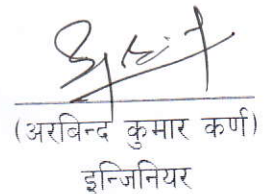 (अरविन्द कुमार कर्ण)
इन्जिनियर